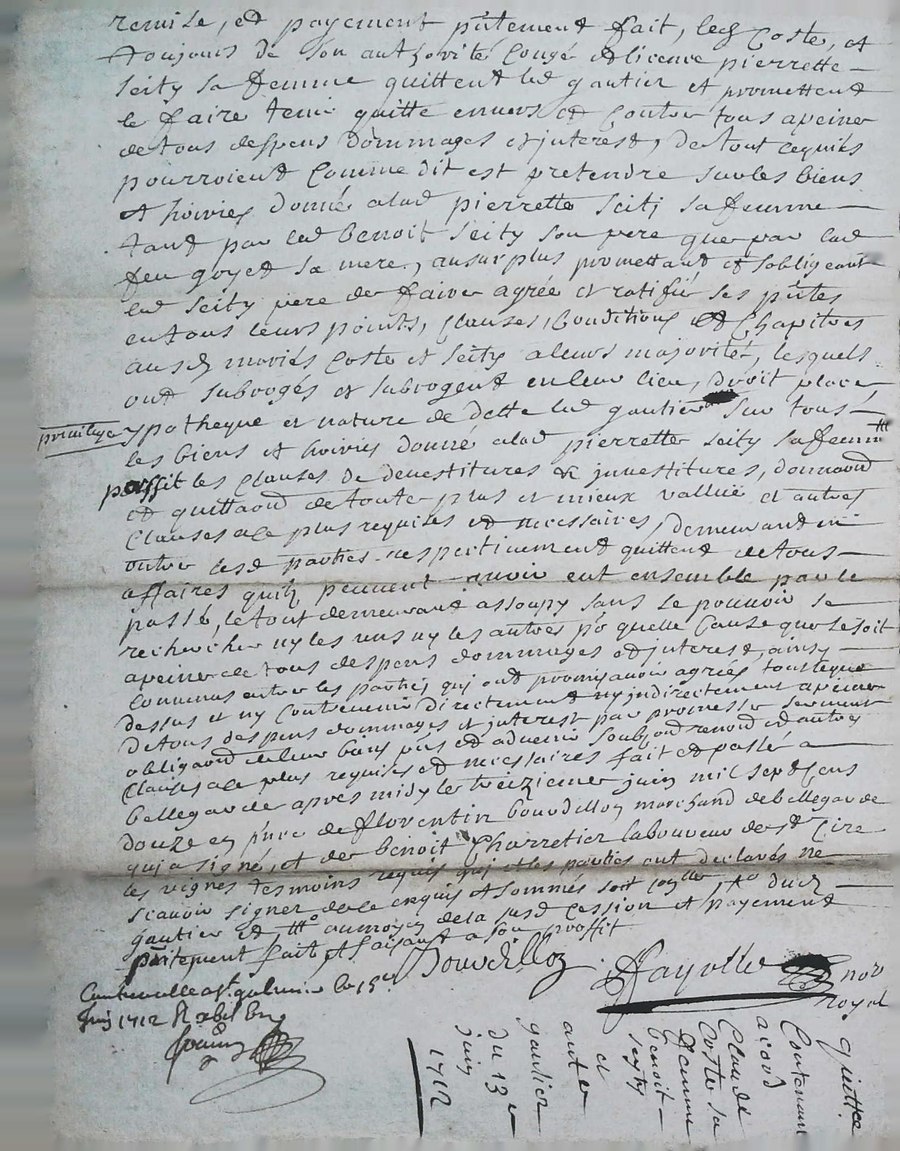 remise, et payement p̃ntement fait, lesd Coste, et
toujours de son authorité Congé et licence pierrette
Seity sa femme quittent led gautier et promettent
le faire tenir quitte envers et contre tous apeine
de tous despens dommages et interest, de tout cequils
pourroient Comme dit est pretendre sur les biens
et hoiries donné alad pierrette Seitj sa femme
tant par led Benoit Seity son pere que par lad
feu goyet sa mere, au surplus promettant et sobligeant
led Seity pere de faire agréé et ratiffié ses p̃ntes
en tous leurs points, Clauses, Conditions et Chapitres
ausd mariés Coste et Seity a leurs majorité, lesquels
ont subrogés et subrogent en leur lieu, droit place
privilege ypotheque et nature de dette led gautier sur tous
les biens et hoiries donné alad pierrette Seity sa femme
passit les Clauses de devestitures & investitures, donnand
et quittand de toute plus et mieux vallue et autres
Clauses ace plus requises et necessaires, demeurant en
outre lesd parties respectivement quittent de tous
affaires quils peuvent avoir eut ensemble par le
passé, le tout demeurant assoupy sans se pouvoir se
rechercher ny les uns ny les autres po quelle Cause que se soit
apeine de tous despens dommages et interest, ainsy
Convenus entre les parties, qui ont promis avoir agréés tout ceque
dessus et ny Contrevenir directement ny indirectement apeine
de tous despens dommages et interest par promesse serment
obligaon de leur biens p̃ns et advenir soubzon renon et autres
Clauses ace plus requises et necessaires fait et passé a
bellegarde apres midy le treizieme juin mil sept Cens
douze en p̃nce de florentin bourdillon marchand de bellegarde
qui a signé, et de benoit Charretier laboureur de st Cire
les vignes tesmoins requis qui et les parties ont declarés ne
scavoir signer de ce enquis et sommés soit
gautier et au moyen de la susd Cession et payement
p̃ntement fait et faisant a son proffit
Bourdillon Fayolle no͞re
royal
Controlle a st galmier le 15e
juin 1712 R
quittce
Contenant
acord
Claude
Coste sa
femme
benoit
seyty
et
autre
gautier
du 13e
juin
1712